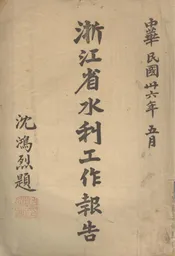 中華民國卅六年五月
浙江省水利工作報告
沈鴻烈題